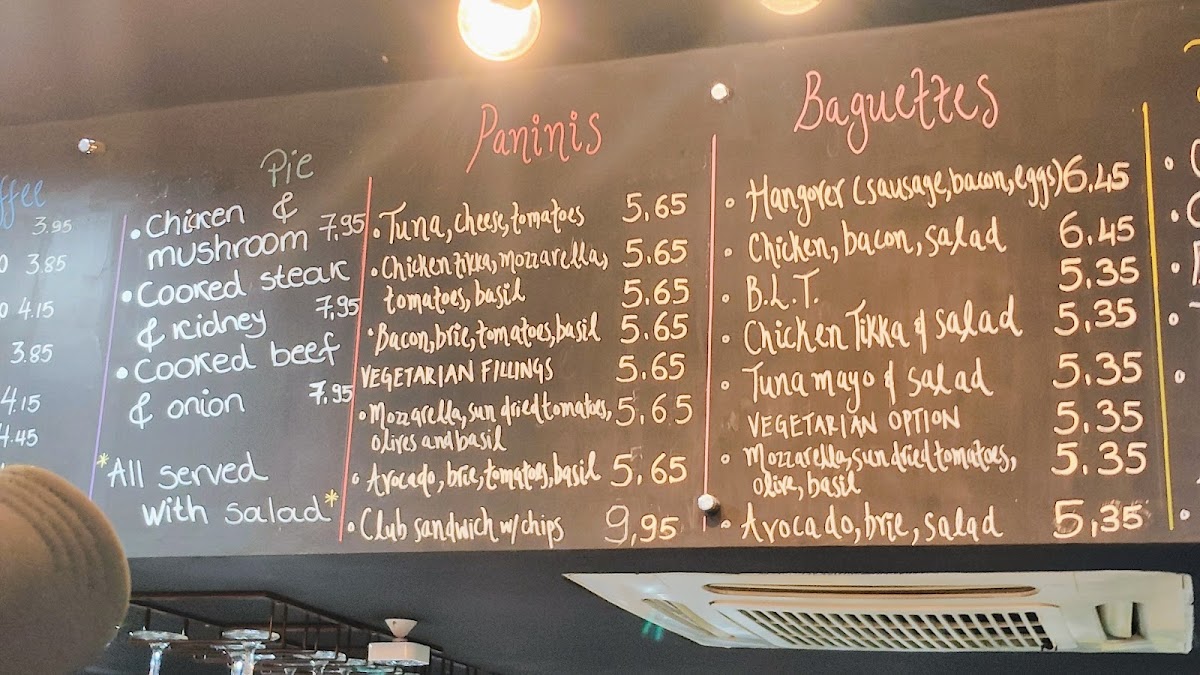 ffee
3.95
3.85
4.15
3.85
4.15
4.45
Pie
• Chicken &
mushroom 7,95
• Cooked steak
& kidney 7,95
• Cooked beef
& onion 7,95
*All served
with salad*
Paninis
• Tuna, cheese, tomatoes 5.65
• Chicken tikka, mozzarella, 5.65
tomatoes, basil 5.65
• Bacon, brie, tomatoes, basil 5.65
VEGETARIAN FILLINGS 5.65
• Mozzarella, sun dried tomatoes, 5,65
olives and basil
• Avocado, brie, tomatoes, basil 5.65
• Club sandwich w/ chips 9,95
Baguettes
• Hangover (sausage, bacon, eggs) 6.45
• Chicken, bacon, salad 6.45
• B.L.T. 5.35
• Chicken Tikka & salad 5.35
• Tuna mayo & salad 5.35
VEGETARIAN OPTION 5.35
• Mozzarella, sun dried tomatoes, 5.35
olive, basil
• Avocado, brie, salad 5,35